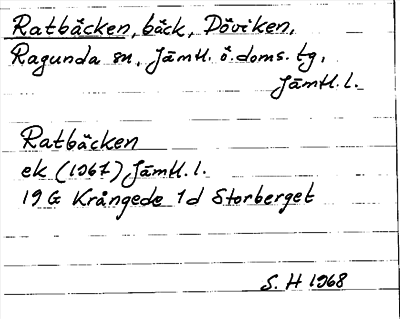 Ratbäcken, bäck, Döviken,
Ragunda sn, Jämtl. ö. doms. tg,
Jämtl. l.
Ratbäcken
ek (1967) Jämtl. l.
19 G Krångede 1 d Storberget
S. H 1968